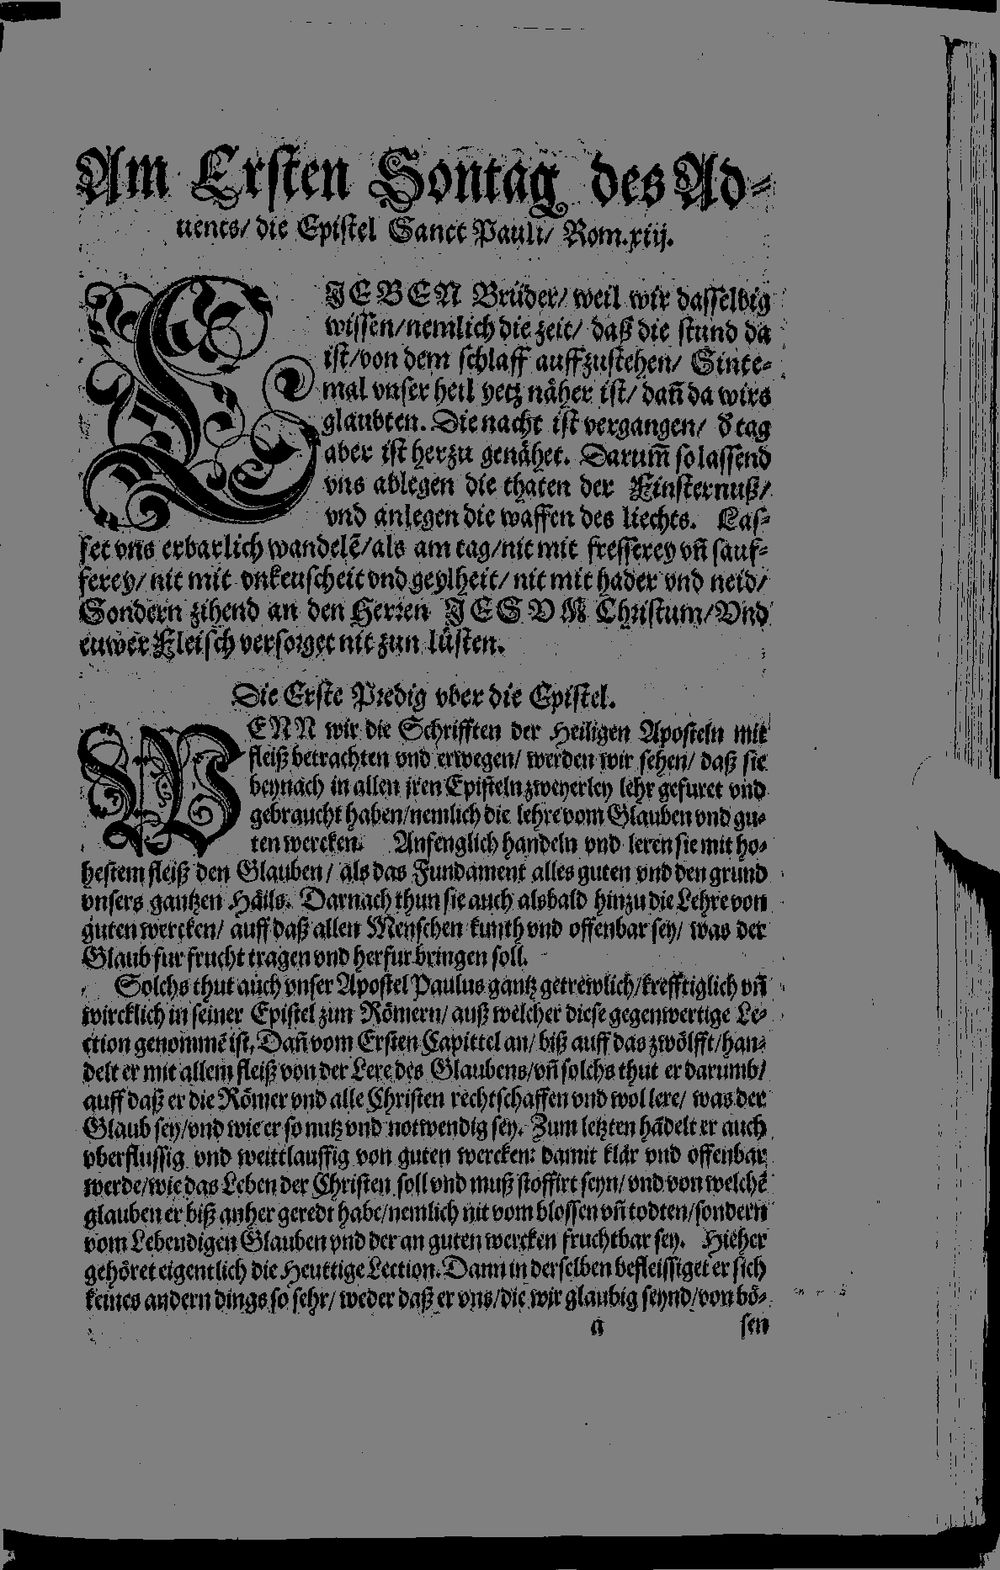 Am Ersten Sontag des Ad-
uents/ die Epistel Sanct Pauli/ Rom.xiij.
LJEBEN Brüder/ weil wir dasselbig
wissen/nemlich die zeit/ daß die stund da
ist/von dem schlaff auffzustehen/ Sinte-
mal vnser heil yetz näher ist/ dañ da wirs
glaubten. Die nacht ist vergangen/ d̕ tag
aber ist herzu genähet. Darum̃ so lassend
vns ablegen die thaten der Finsternuß/
vnd anlegen die waffen des liechts. Las-
set vns erbarlich wandelẽ/als am tag/nit mit fresserey vñ sauf-
ferey/ nit mit vnkeuscheit vnd geylheit/ nit mit hader vnd neid/
Sondern zihend an den Herren JESVM Christum/Vnd
euwer Fleisch versorget nit zun lüsten.
Die Erste Predig vber die Epistel.
WENN wir die Schrifften der Heiligen Aposteln mit
fleiß betrachten vnd erwegen/ werden wir sehen/ daß sie
beynach in allen jren Episteln zweyerley lehr gefuret vnd
gebraucht haben/nemlich die lehre vom Glauben vnd gu-
ten wercken. Anfenglich handeln vnd leren sie mit ho-
hestem fleiß den Glauben/ als das Fundament alles guten vnd den grund
vnsers gantzen Häils. Darnach thun sie auch alsbald hinzu die Lehre von
guten wercken/ auff daß allen Menschen kunth vnd offenbar sey/ was der
Glaub fur frucht tragen vnd herfur bringen soll.
Solchs thut auch vnser Apostel Paulus gantz getrewlich/krefftiglich vñ
wircklich in seiner Epistel zun Römern/ auß welcher diese gegenwertige Le-
ction genommẽ ist. Dañ vom Ersten Capittel an/ biß auff das zwölfft/han-
delt er mit allem fleiß von der Lere des Glaubens/vñ solchs thut er darumb/
auff daß er die Römer vnd alle Christen rechtschaffen vnd wol lere/ was der
Glaub sey/vnd wie er so nutz vnd notwendig sey. Zum letzten hãdelt er auch
vberflussig vnd weittlauffig von guten wercken: damit klär vnd offenbar
werde/wie das Leben der Christen soll vnd muß stoffirt seyn/ vnd von welchẽ
glauben er biß anher geredt habe/nemlich nit vom blossen vñ todten/sondern
vom Lebendigen Glauben vnd der an guten wercken fruchtbar sey. Hieher
gehöret eigentlich die Heuttige Lection. Dann in derselben befleissiget er sich
keines andern dings so sehr/ weder daß er vns/die wir glaubig seynd/von bö-
a sen